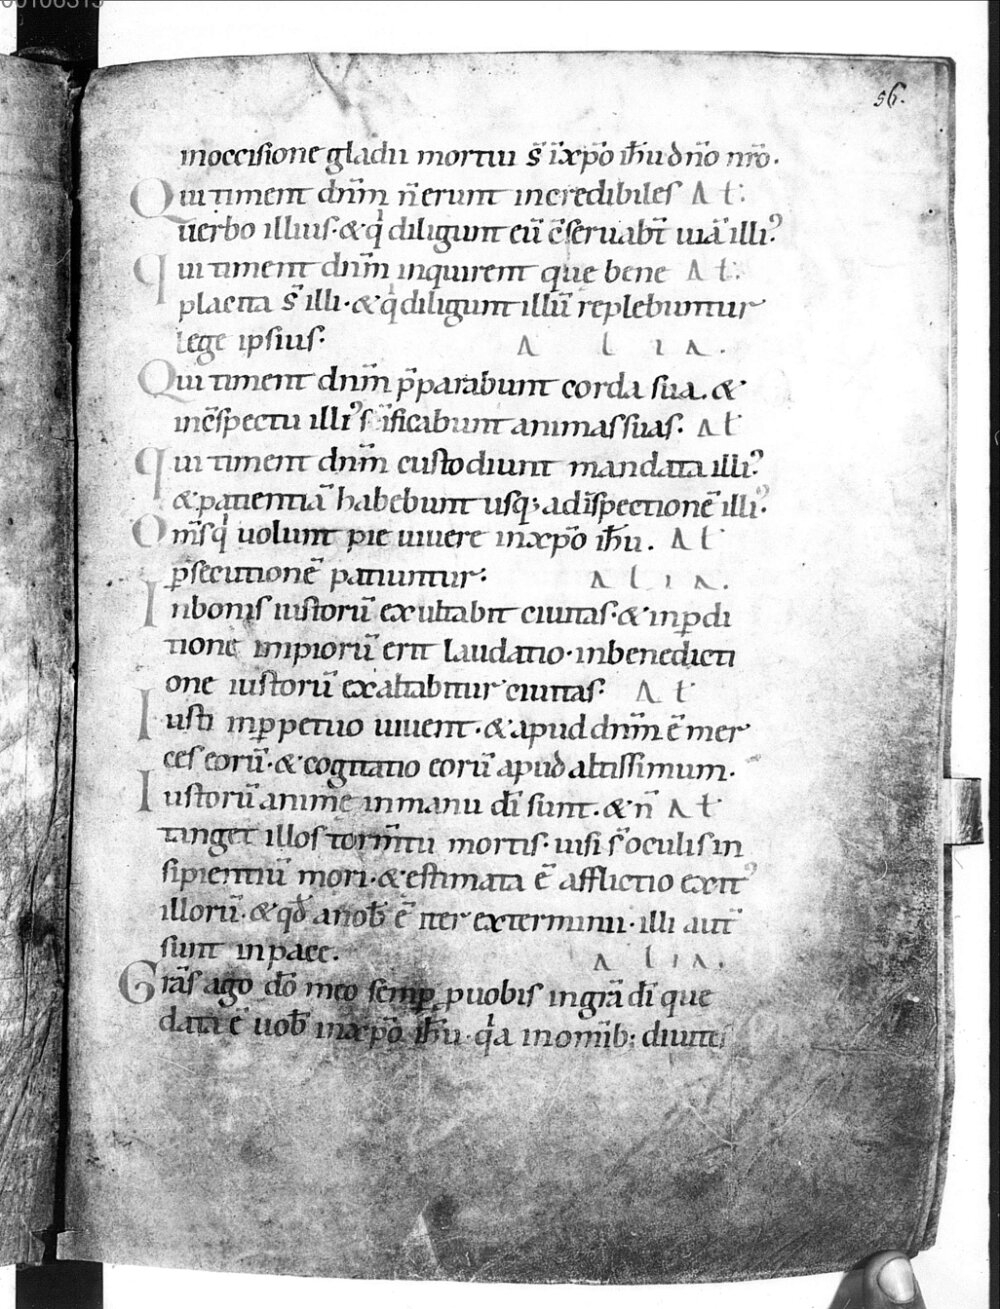 56.
inoccisione gladii mortui s̄ īxp̄o ih̄u dn̄o nr̄o.
Qui timent dn̄m n̄ erunt incredibiles A t:
uerbo illius. & q̇ diligunt eū c̄seruab̄t uiā illi⁹
qui timent dn̄m inquirent que bene A t:
placita s̄ illi. & q̇ diligunt illū replebuntur
lege ipsius. A l i a .
Qui timent dn̄m p̄parabunt corda sua. &
inc̄spectu illi⁹ s̄c̄ificabunt animas suas. A t
qui timent dn̄m custodiunt mandata illi⁹
& patientiā habebunt usq; ad īspectionē illi⁹.
Om̄s q̇ uolunt pie uiuere in xp̄o ih̄u. A t
ꝑsecutionē patiuntur. A l i a .
In bonis iustorū exultabit ciuitas. & inꝑdi
tione impiorū erit laudatio. inbenedicti
one iustorū exaltabitur ciuitas. A t
Iusti inꝑpetuo uiuent. & apud dn̄m ē mer
ces eorū. & cogitatio eorū apud altissimum.
Iustorū anime inmanu dī sunt. & n̄ A t
tanget illos torm̄tū mortis. uisi s̄ oculis in
sipientiū mori. & estimata ē afflictio exit⁹
illorū. & qd̄ anob̄ ē iter exterminii. illi aut̄
sunt inpace. A l i a .
Grās ago dō meo semꝑ puobis ingrā dī que
data ē uob̄ inxp̄o ih̄u. q̇a inomīb; diuites